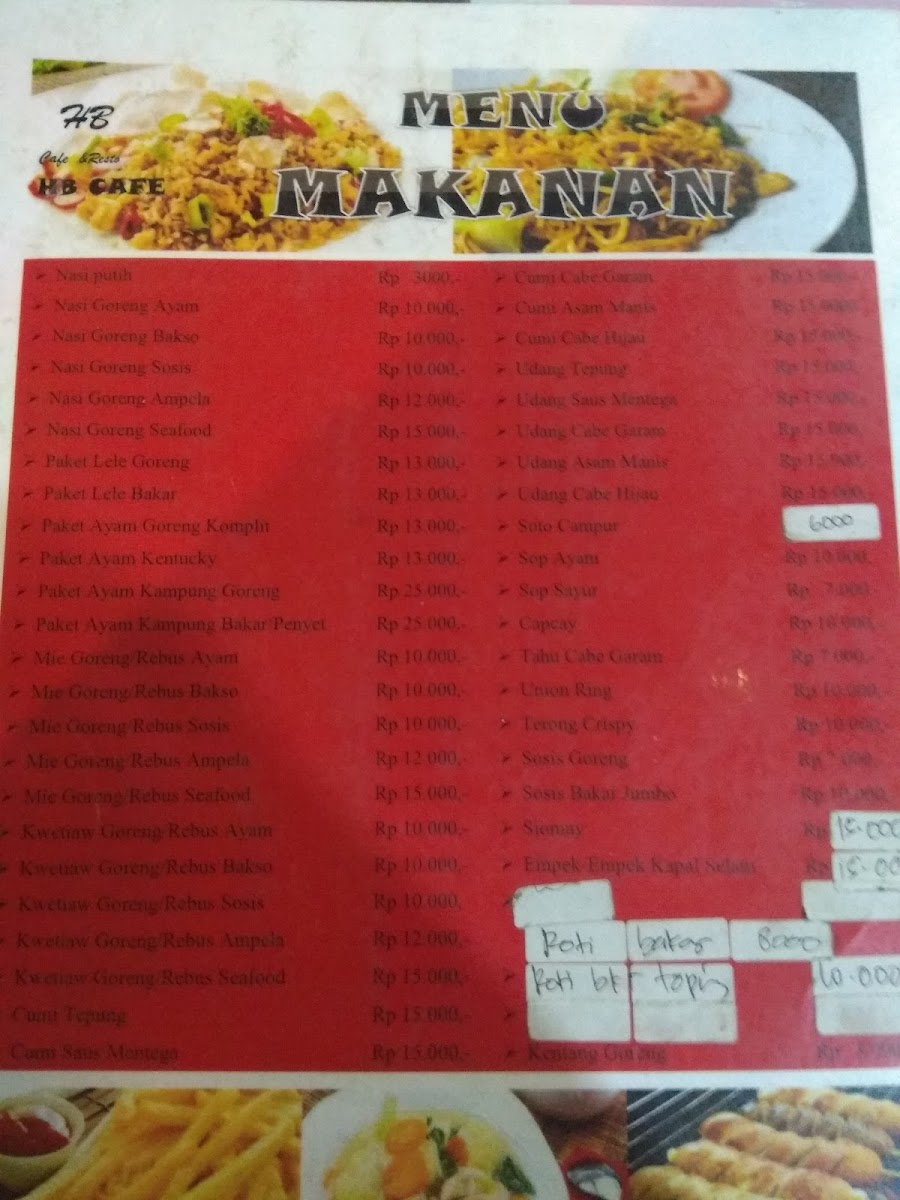 HB
Cafe &Resto
HB CAFE
MENU
MAKANAN
Nasi putih Rp 3000,-
Nasi Goreng Ayam Rp 10.000,-
Nasi Goreng Bakso Rp 10.000,-
Nasi Goreng Sosis Rp 10.000,-
Nasi Goreng Ampela Rp 12.000,-
Nasi Goreng Seafood Rp 15.000,-
Paket Lele Goreng Rp 13.000,-
Paket Lele Bakar Rp 13.000,-
Paket Ayam Goreng Komplit Rp 13.000,-
Paket Ayam Kentucky Rp 13.000,-
Paket Ayam Kampung Goreng Rp 25.000,-
Paket Ayam Kampung Bakar/Penyet Rp 25.000,-
Mie Goreng/Rebus Ayam Rp 10.000,-
Mie Goreng/Rebus Bakso Rp 10.000,-
Mie Goreng/Rebus Sosis Rp 10.000,-
Mie Goreng/Rebus Ampela Rp 12.000,-
Mie Goreng/Rebus Seafood Rp 15.000,-
Kwetiaw Goreng/Rebus Ayam Rp 10.000,-
Kwetiaw Goreng/Rebus Bakso Rp 10.000,-
Kwetiaw Goreng/Rebus Sosis Rp 10.000,
Kwetiaw Goreng/Rebus Ampela Rp 12.000,-
Kwetiaw Goreng/Rebus Seafood Rp 15.000,-
Cumi Tepung Rp 15.000,-
Cumi Saus Mentega Rp 15.000,-
Cumi Cabe Garam Rp 15.000,-
Cumi Asam Manis Rp 15.000
Cumi Cabe Hijau Rp 15.000,-
Udang Tepung Rp 15.000,
Udang Saus Mentega Rp 15.000,-
Udang Cabe Garam Rp 15.000,
Udang Asam Manis Rp 15.000,-
Udang Cabe Hijau Rp 15.000,-
Soto Campur 6000
Sop Ayam Rp 10.000,
Sop Sayur Rp 7.000,-
Capcay Rp 10.000,
Tahu Cabe Garam Rp 7.000,-
Union Ring Rp 10.000,
Terong Crispy Rp 10.000,-
Sosis Goreng Rp 7.000,
Sosis Bakar Jumbo Rp 10.000
Siomay Rp 15.000
Empek-Empek Kapal Selam Rp 15.00
Roti bakar 8000
Roti bk topin 10.000
Kentang Goreng Rp